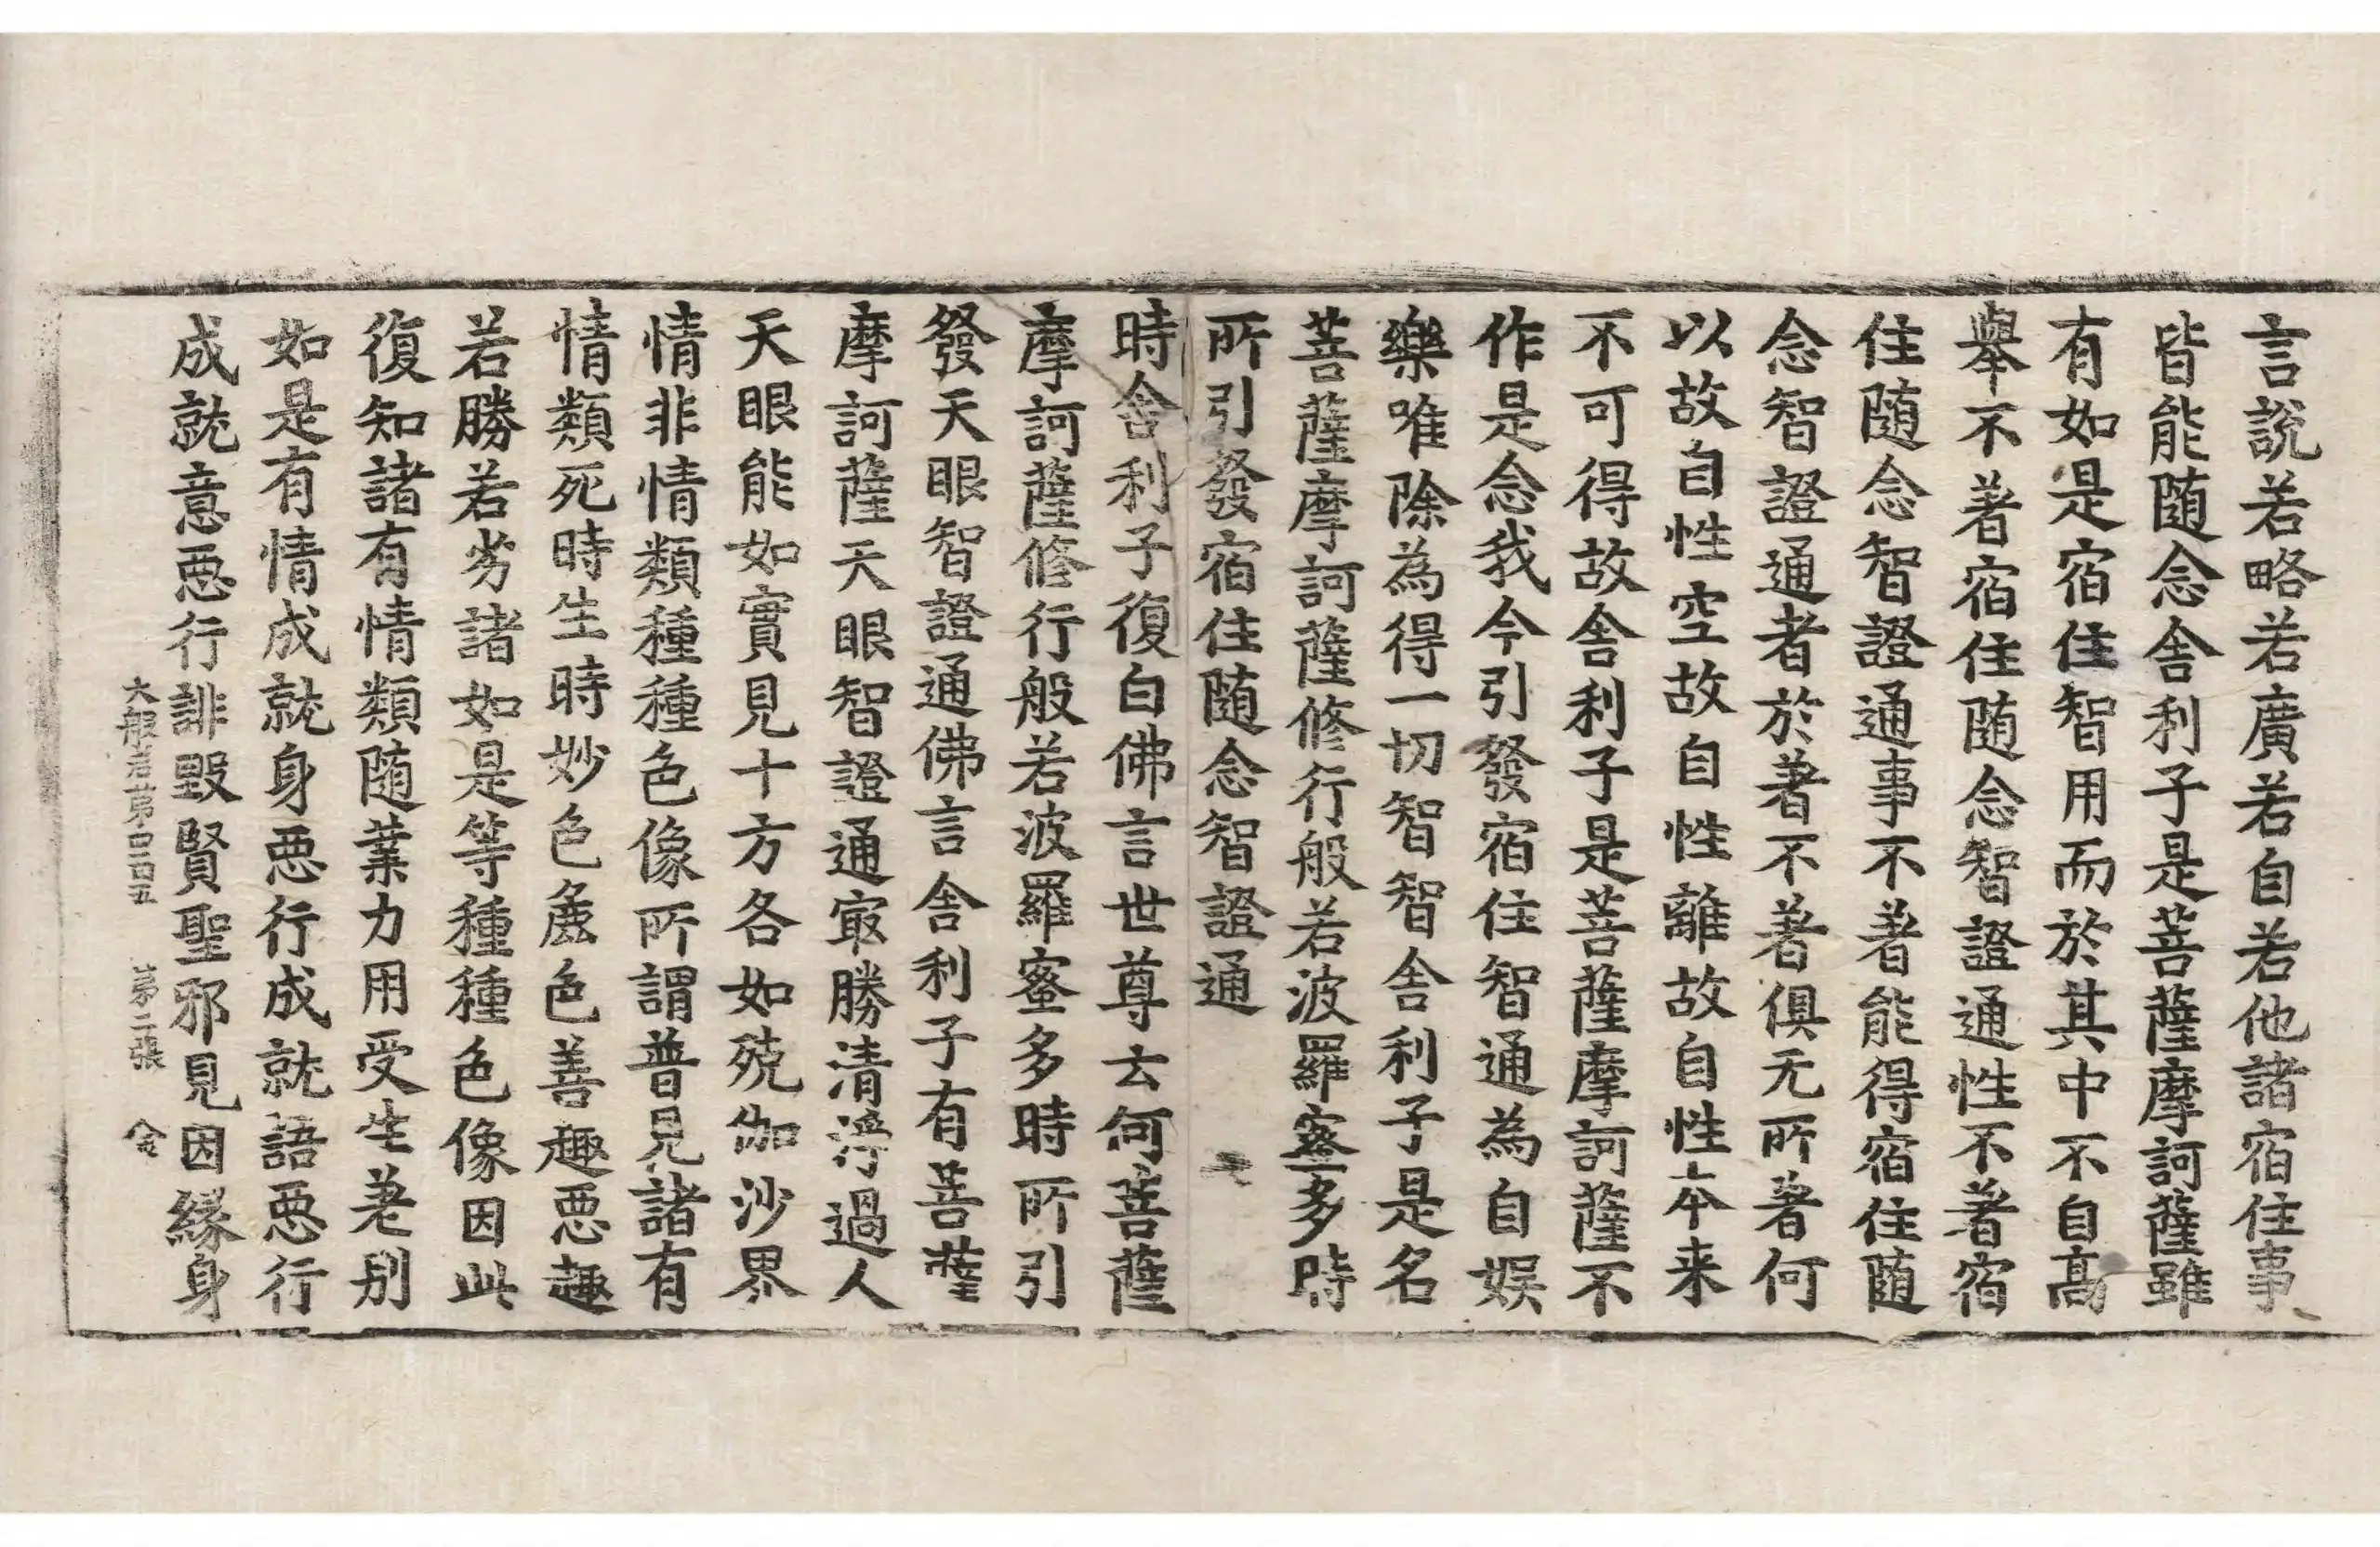 言說若略若廣若自若他諸宿住事
皆能随念舎利子是菩薩摩訶薩雖
有如是宿住智用而於其中不自髙
舉不著宿住随念智證通性不著宿
住随念智證通事不著能得宿住随
念智證通者於著不著俱无所著何
以故自性空故自性離故自性本来
不可得故舎利子是菩薩摩訶薩不
作是念我今引發宿住智通為自娱
樂唯除為得一切智智舎利子是名
菩薩摩訶薩修行般若波羅蜜多時
所引發宿住随念智證通
時舎利子復白佛言世尊云何菩薩
摩訶薩修行般若波羅蜜多時所引
發天眼智證通佛言舎利子有菩薩
摩訶薩天眼智證通冣勝清淨過人
天眼能如實見十方各如殑伽沙界
情非情類種種色像所謂普見諸有
情類死時生時妙色麁色善趣悪趣
若勝若劣諸如是等種種色像因此
復知諸有情類随業力用受生差别
如是有情成就身悪行成就語悪行
成就意悪行誹毀賢聖邪見因縁身
大般若第四百五 第二張 金